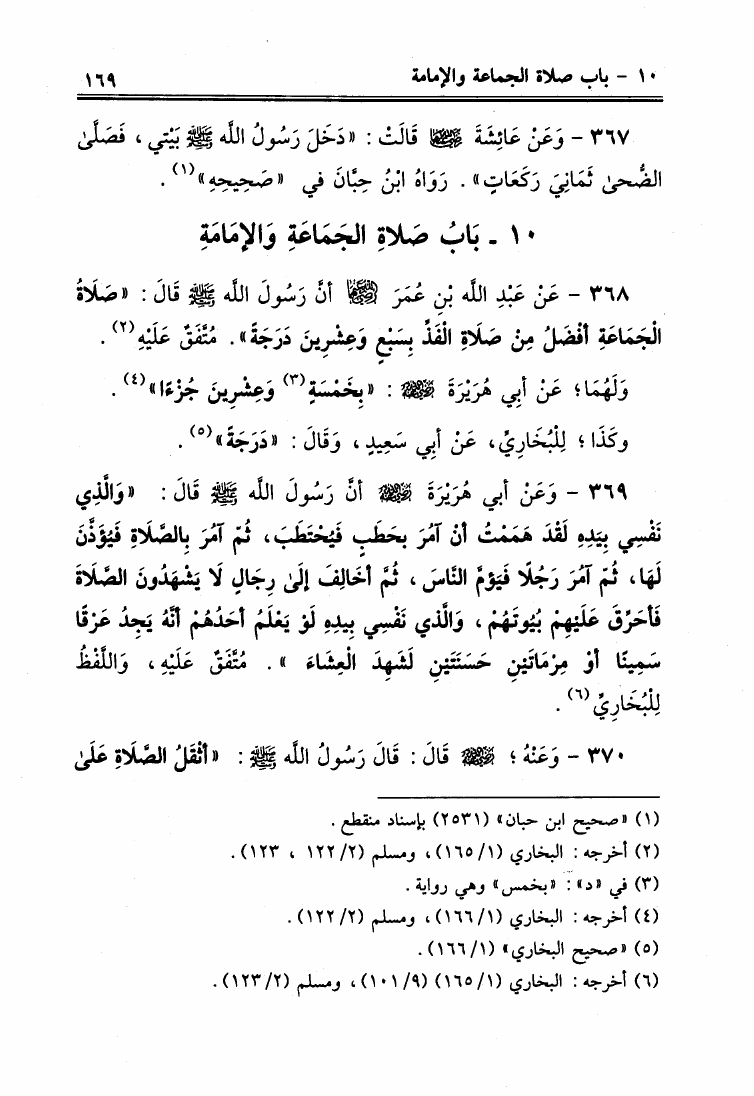 ١٠ - باب صلاة الجماعة والإمامة ١٦٩
٣٦٧ - وَعَنْ عَائِشَةَ رضي الله عنها قَالَتْ : «دَخَلَ رَسُولُ الله ﷺ بَيْتي ، فَصَلَّىٰ
الضُّحىٰ ثَمَانِيَ رَكَعَاتٍ» . رَوَاهُ ابْنُ حِبَّانَ في «صَحِيحِهِ»(١) .
١٠ - بَابُ صَلاةِ الجَمَاعَةِ وَالإمَامَةِ
٣٦٨ - عَنْ عَبْدِ الله بْنِ عُمَرَ رضي الله عنهما أنَّ رَسُولَ الله ﷺ قَالَ : «صَلَاةُ
الْجَمَاعَةِ أفْضَلُ مِنْ صَلَاةِ الْفَذِّ بِسَبْعٍ وَعِشْرِينَ دَرَجَةً» . مُتَّفَقٌ عَلَيْهِ(٢) .
وَلَهُمَا؛ عَنْ أبِي هُرَيْرَةَ رضي الله عنه : «بِخَمْسَةٍ(٣) وَعِشْرِينَ جُزْءًا»(٤) .
وكَذَا ؛ لِلْبُخَارِيِّ، عَنْ أبي سَعِيدٍ ، وَقَالَ : «دَرَجَةً»(٥) .
٣٦٩ - وَعَنْ أبي هُرَيْرَةَ رضي الله عنه أنَّ رَسُولَ الله ﷺ قَالَ : «وَالَّذِي
نَفْسِي بِيَدِهِ لَقَدْ هَمَمْتُ أنْ آمُرَ بحَطَبٍ فَيُحْتَطَبَ، ثُمّ آمُرَ بِالصَّلَاةِ فَيُؤَذَّنَ
لَهَا، ثُمّ آمُرَ رَجُلًا فَيَؤمَّ النَّاسَ ، ثُمَّ أخَالِفَ إلَىٰ رِجَالٍ لَا يَشْهَدُونَ الصَّلَاةَ
فَأحَرِّقَ عَلَيْهِمْ بُيُوتَهُمْ ، وَالَّذي نَفْسِي بيدِهِ لَوْ يَعْلَمُ أحَدُهُمْ أنَّهُ يَجِدُ عَرْقًا
سَمِينًا أوْ مِرْمَاتَيْنِ حَسَنَتَيْنِ لَشَهِدَ الْعِشَاءَ » . مُتَّفَقٌ عَلَيْهِ، وَاللَّفْظُ
لِلْبُخَارِيِّ(٦) .
٣٧٠ - وَعَنْهُ ؛ رضي الله عنه قَالَ : قَالَ رَسُولُ الله ﷺ : «أثْقَلُ الصَّلَاةِ عَلَىٰ
(١) «صحيح ابن حبان» (٢٥٣١) بإسناد منقطع .
(٢) أخرجه : البخاري (١/ ١٦٥)، ومسلم (٢/ ١٢٢ ، ١٢٣) .
(٣) في «د» : «بخمس» وهي رواية .
(٤) أخرجه : البخاري (١/ ١٦٦) ، ومسلم (٢/ ١٢٢) .
(٥) «صحيح البخاري» (١/ ١٦٦) .
(٦) أخرجه : البخاري (١/ ١٦٥) (٩/ ١٠١)، ومسلم (٢/ ١٢٣) .